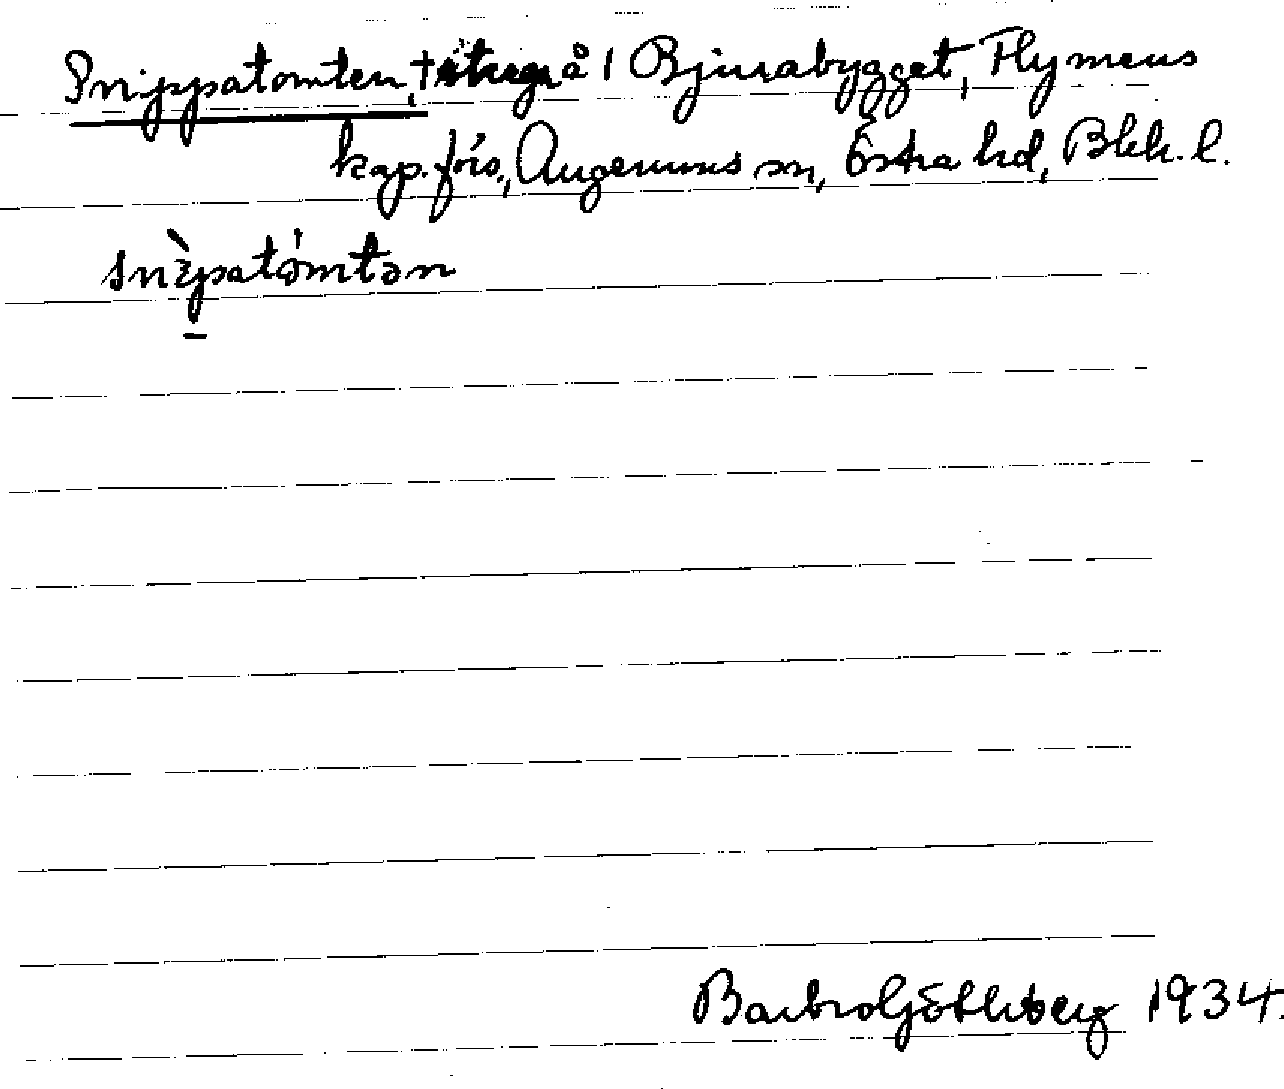 Snippatomten, † stuga å 1 Bjurabygget, Flymens
kap. förs., Augerums sn, Östra hd, Blek. l.
snìpatómtən
Barbro Götlberg 1934.